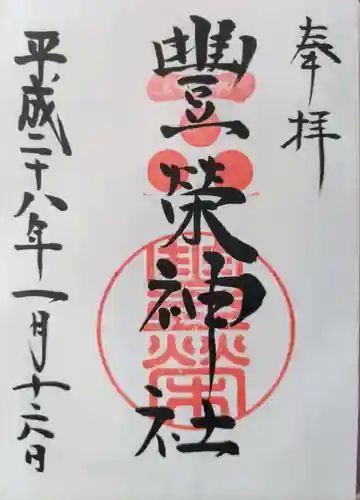 奉拝
豐榮神社
平成二十八年一月十六日
豐榮